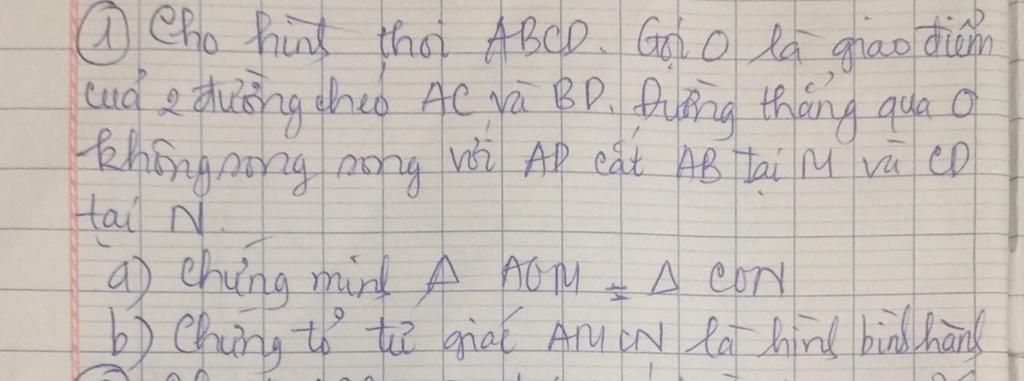 ① Cho hình thoi ABCD. Gọi O là giao điểm
của 2 đường chéo AC và BD. Đường thẳng qua O
không song song với AD cắt AB tại M và CD
tại N.
a) Chứng minh Δ AOM = Δ CON
b) Chứng tỏ tứ giác AMCN là hình bình hành